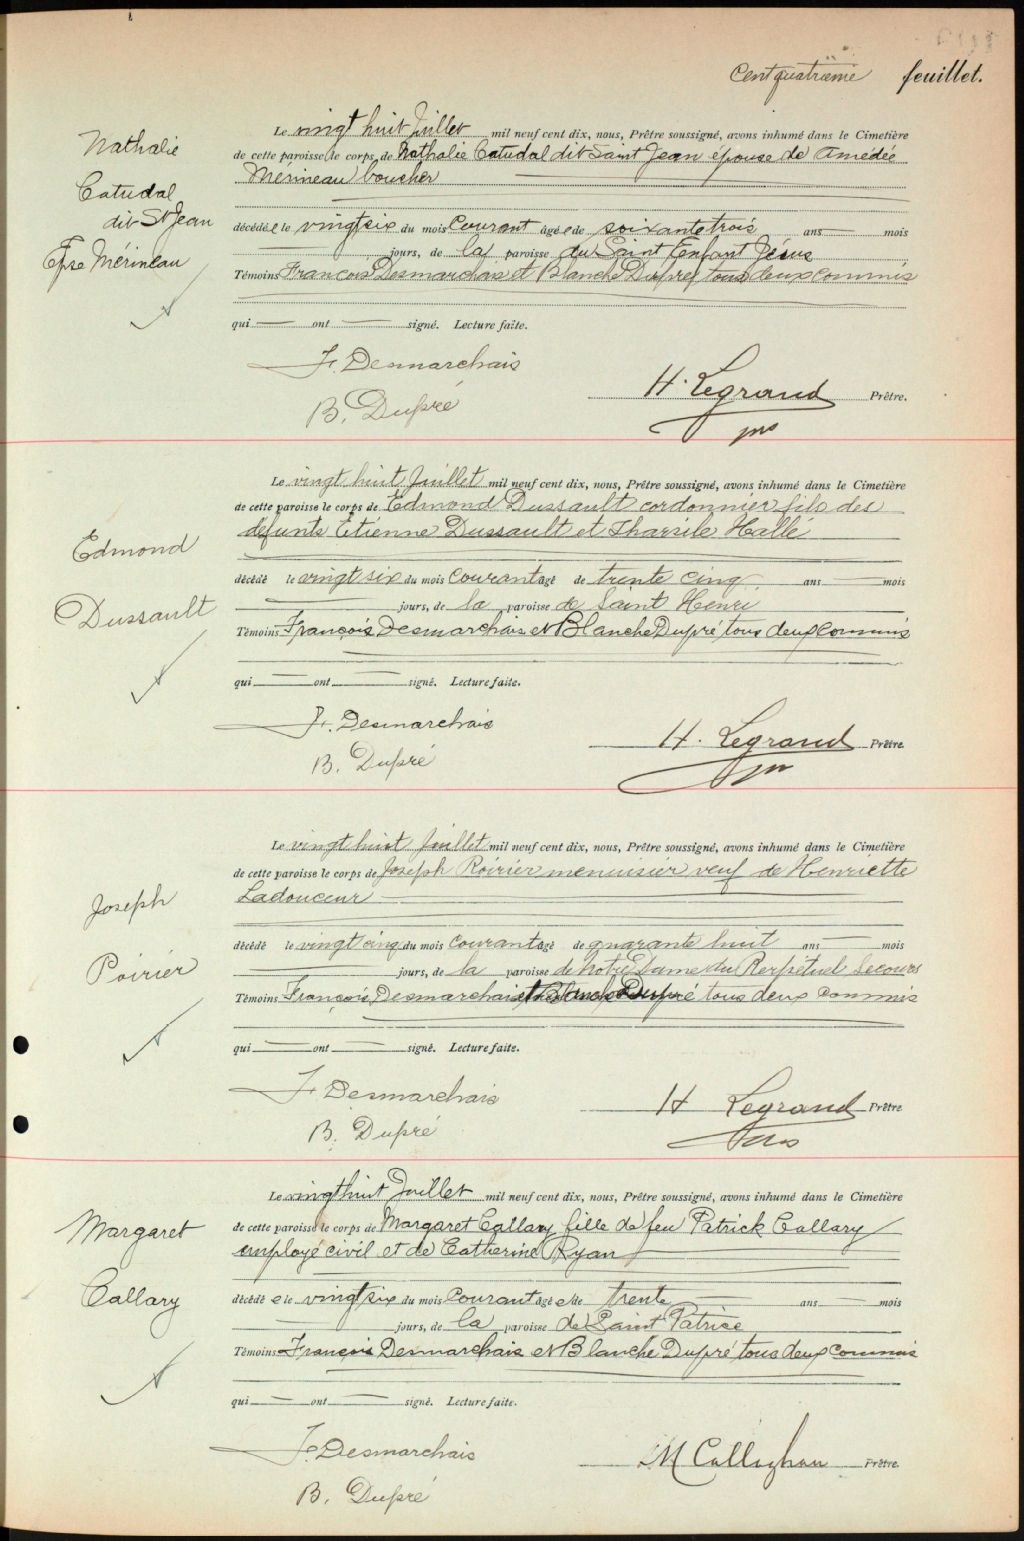 Cent quatrième feuillet.
Nathalie
Catudal
dit St Jean
Epse Mérineau
Le vingt huit Juillet mil neuf cent dix, nous, Prêtre soussigné, avons inhumé dans le Cimetière
de cette paroisse le corps de Nathalie Catudal dit Saint Jean épouse de Amédée
Mérineau boucher
décédé e le vingt six du mois courant âgé e de soixante trois ans — mois
jours, de la paroisse du Saint Enfant Jésus
Témoins François Desmarchais et Blanche Dupré tous deux commis
qui — ont — signé. Lecture faite.
F. Desmarchais
B. Dupré
H. Legrand Prêtre.
Edmond
Dussault
Le vingt huit Juillet mil neuf cent dix, nous, Prêtre soussigné, avons inhumé dans le Cimetière
de cette paroisse le corps de Edmond Dussault cordonnier fils des
défunts Etienne Dussault et Tharsile Hallé
décédé le vingt six du mois courant âgé de trente cinq ans — mois
— jours, de la paroisse de Saint Henri
Témoins François Desmarchais et Blanche Dupré tous deux commis
qui — ont — signé. Lecture faite.
F. Desmarchais
B. Dupré
H. Legrand Prêtre
Joseph
Poirier
Le vingt huit Juillet mil neuf cent dix, nous, Prêtre soussigné, avons inhumé dans le Cimetière
de cette paroisse le corps de Joseph Poirier menuisier veuf de Henriette
Ladouceur
décédé le vingt cinq du mois courant âgé de quarante huit ans — mois
— jours, de la paroisse de Notre Dame du Perpétuel Secours
Témoins François Desmarchais et Blanche Dupré tous deux commis
qui — ont — signé. Lecture faite.
F. Desmarchais
B. Dupré
H Legrand Prêtre
Margaret
Callary
Le vingt huit Juillet mil neuf cent dix, nous, Prêtre soussigné, avons inhumé dans le Cimetière
de cette paroisse le corps de Margaret Callary fille de feu Patrick Callary
employé civil et de Catherine Ryan
décédé e le vingt six du mois courant âgé e de trente — ans — mois
— jours, de la paroisse de Saint Patrice
Témoins François Desmarchais et Blanche Dupré tous deux commis
qui — ont — signé. Lecture faite.
F. Desmarchais
B. Dupré
M Callaghan Prêtre.